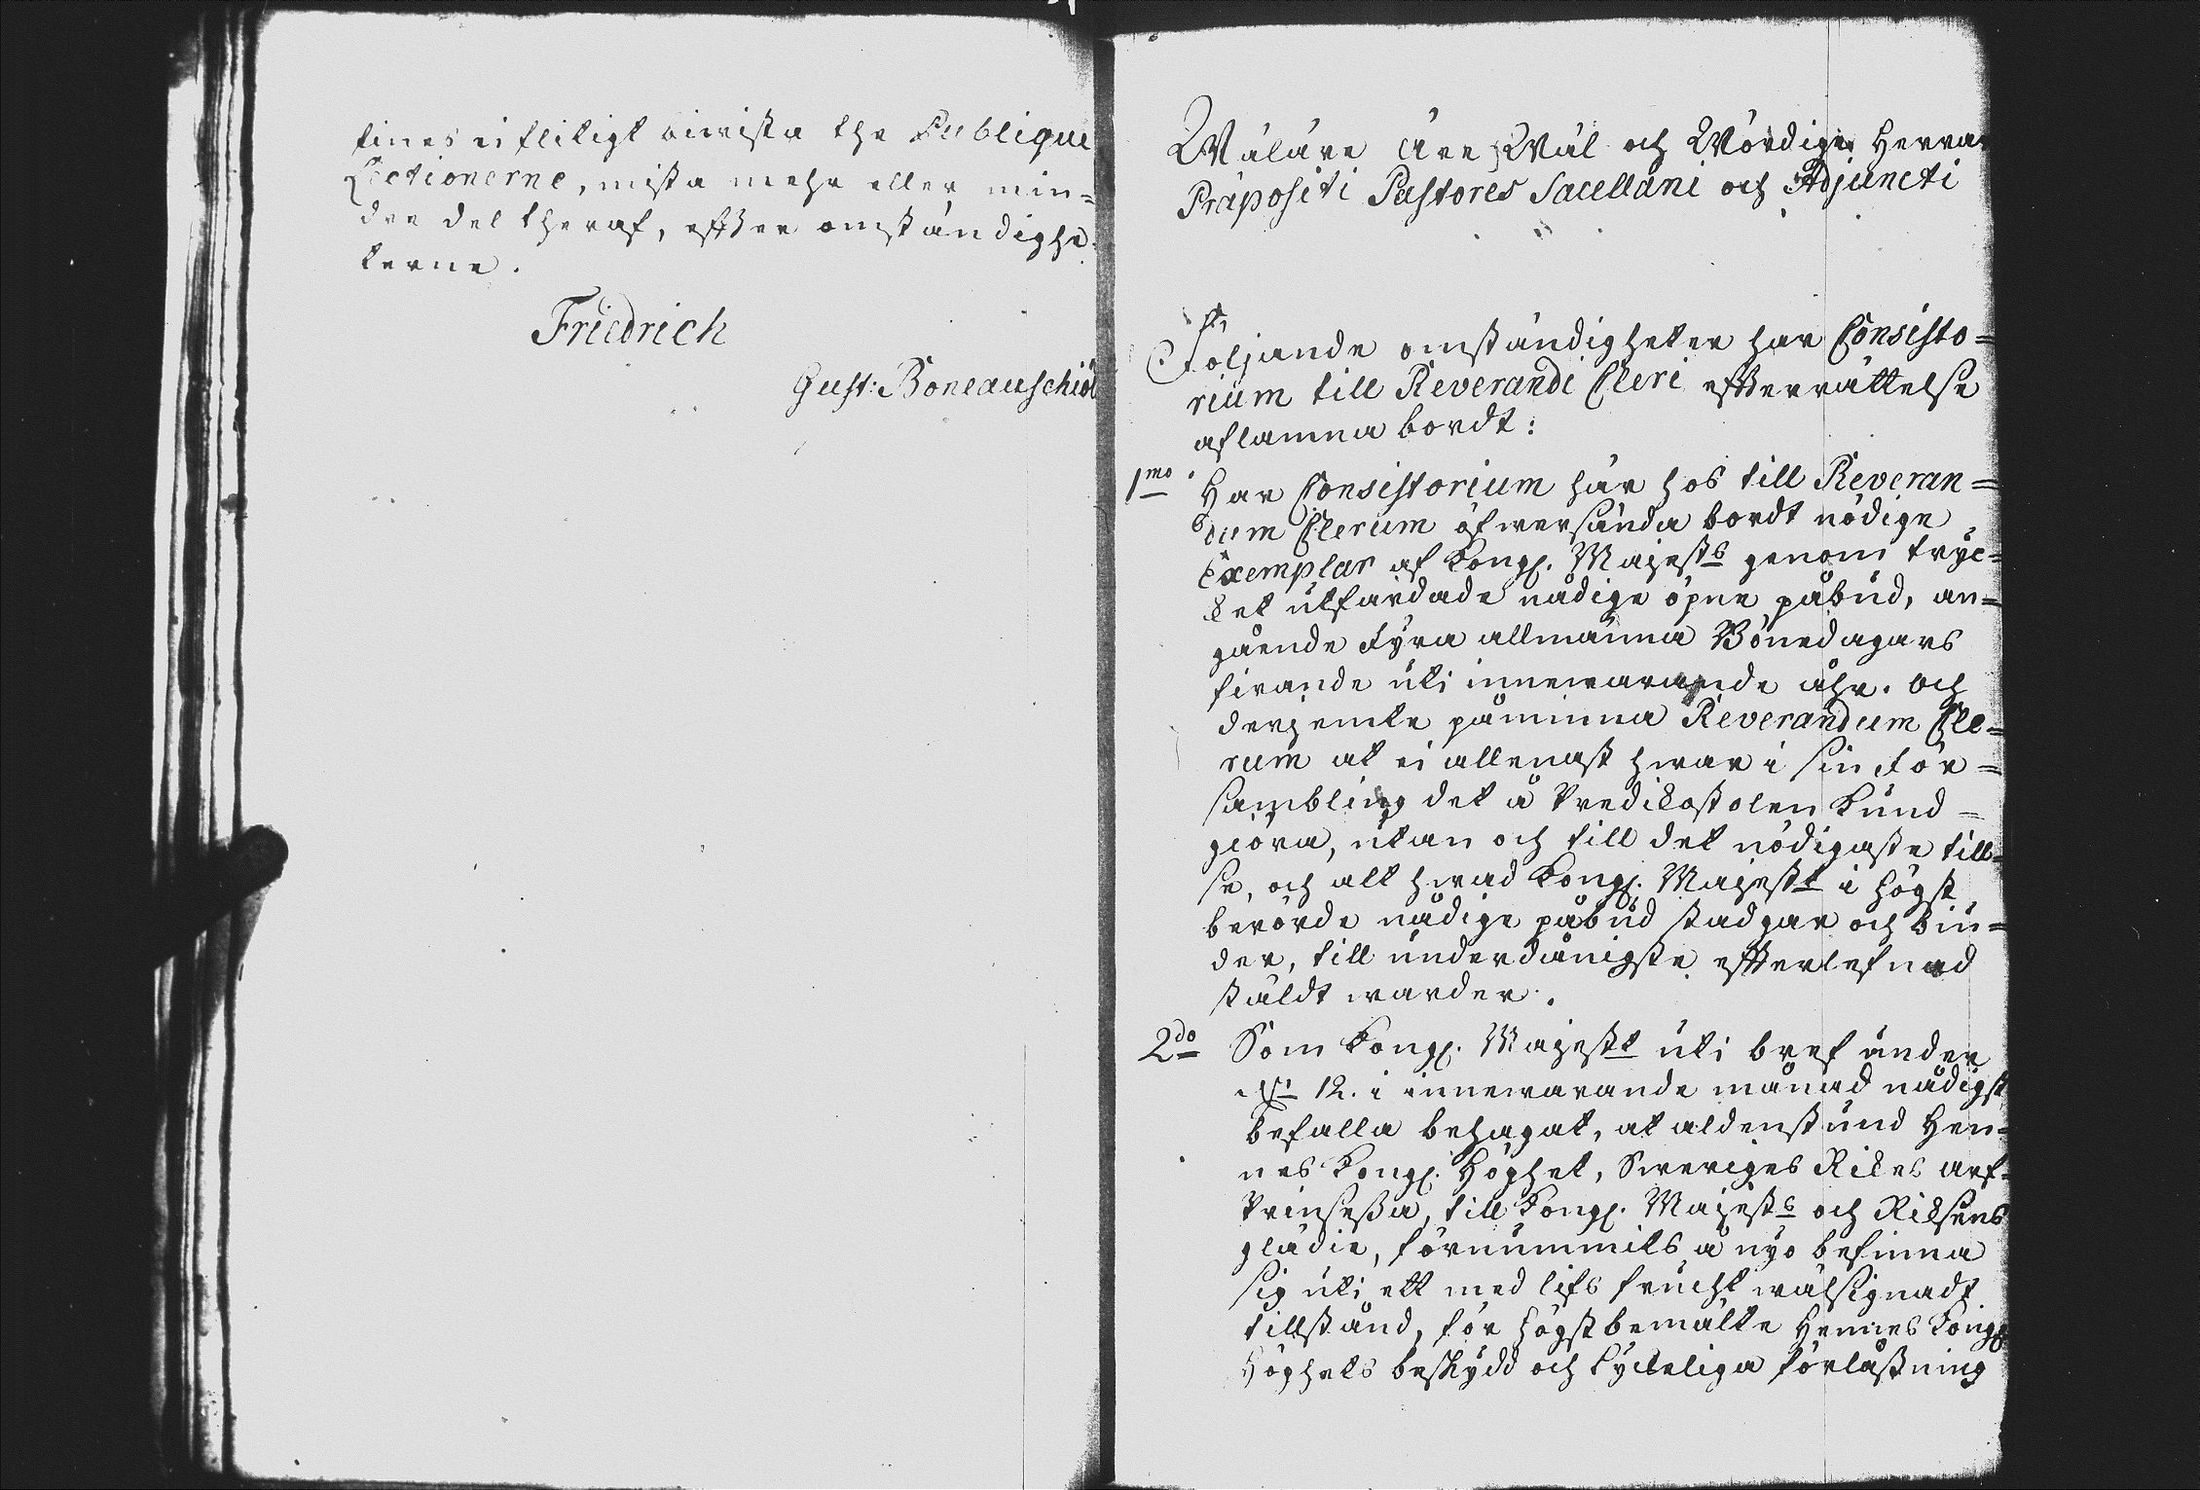 finnes ei flitigt biwista the Publique
Lectionerne, mista mehr eller min=
dre del theraf, effter omständighe=
terne.
Friedrich
Gust: Boneauschiöl
Wäl äre Äre Wäl och Wördige Herrar
Præpositi Pastores Sacellani och Adjuncti
Följande omständigheter har Consisto=
rium till Reverandi Cleri effterrättelse
aflämna bordt:
1mo Har Consistorium här hos till Reveran=
dum Clerum öfwersända bordt nödige
Exemplar af Kongl. Majests genom tryc=
ket utfärdade nådige öpne påbud, an=
gående Fyra allmänna Bönedagars
firande uti innewarande åhr. Och
derjemte påminna Reverandum Cle=
rum at ei allenast hwar i sin För=
sambling det å Predikostolen kund=
giöra, utan och till det nödigaste till=
se, och alt hwad Kongl. Majestt i högst
berörde nådige påbud stadgar och biu=
der, till underdånigste effterlefnad
stäldt warder.
2do Som Kongl. Majestt uti bref under
d. 12. i innewarande månad nådigst
befalla behagat, at aldenstund Hen=
nes Kongl. Höghet, Sweriges Rikes Arf=
Prinsessa, till Kongl. Majests och Riksens
glädie, förnummits å nyo befinna
sig uti ett med lifs frucht wälsignadt
tillstånd, för högstbemälte Hennes Kongl
Höghets beskydd och lyckeliga förlåssning